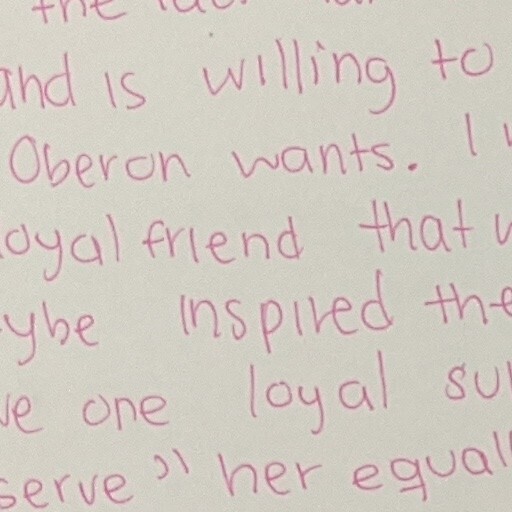 the
and is willing to
Oberon wants. I
loyal friend that
inspired the
one loyal
serve" her equal